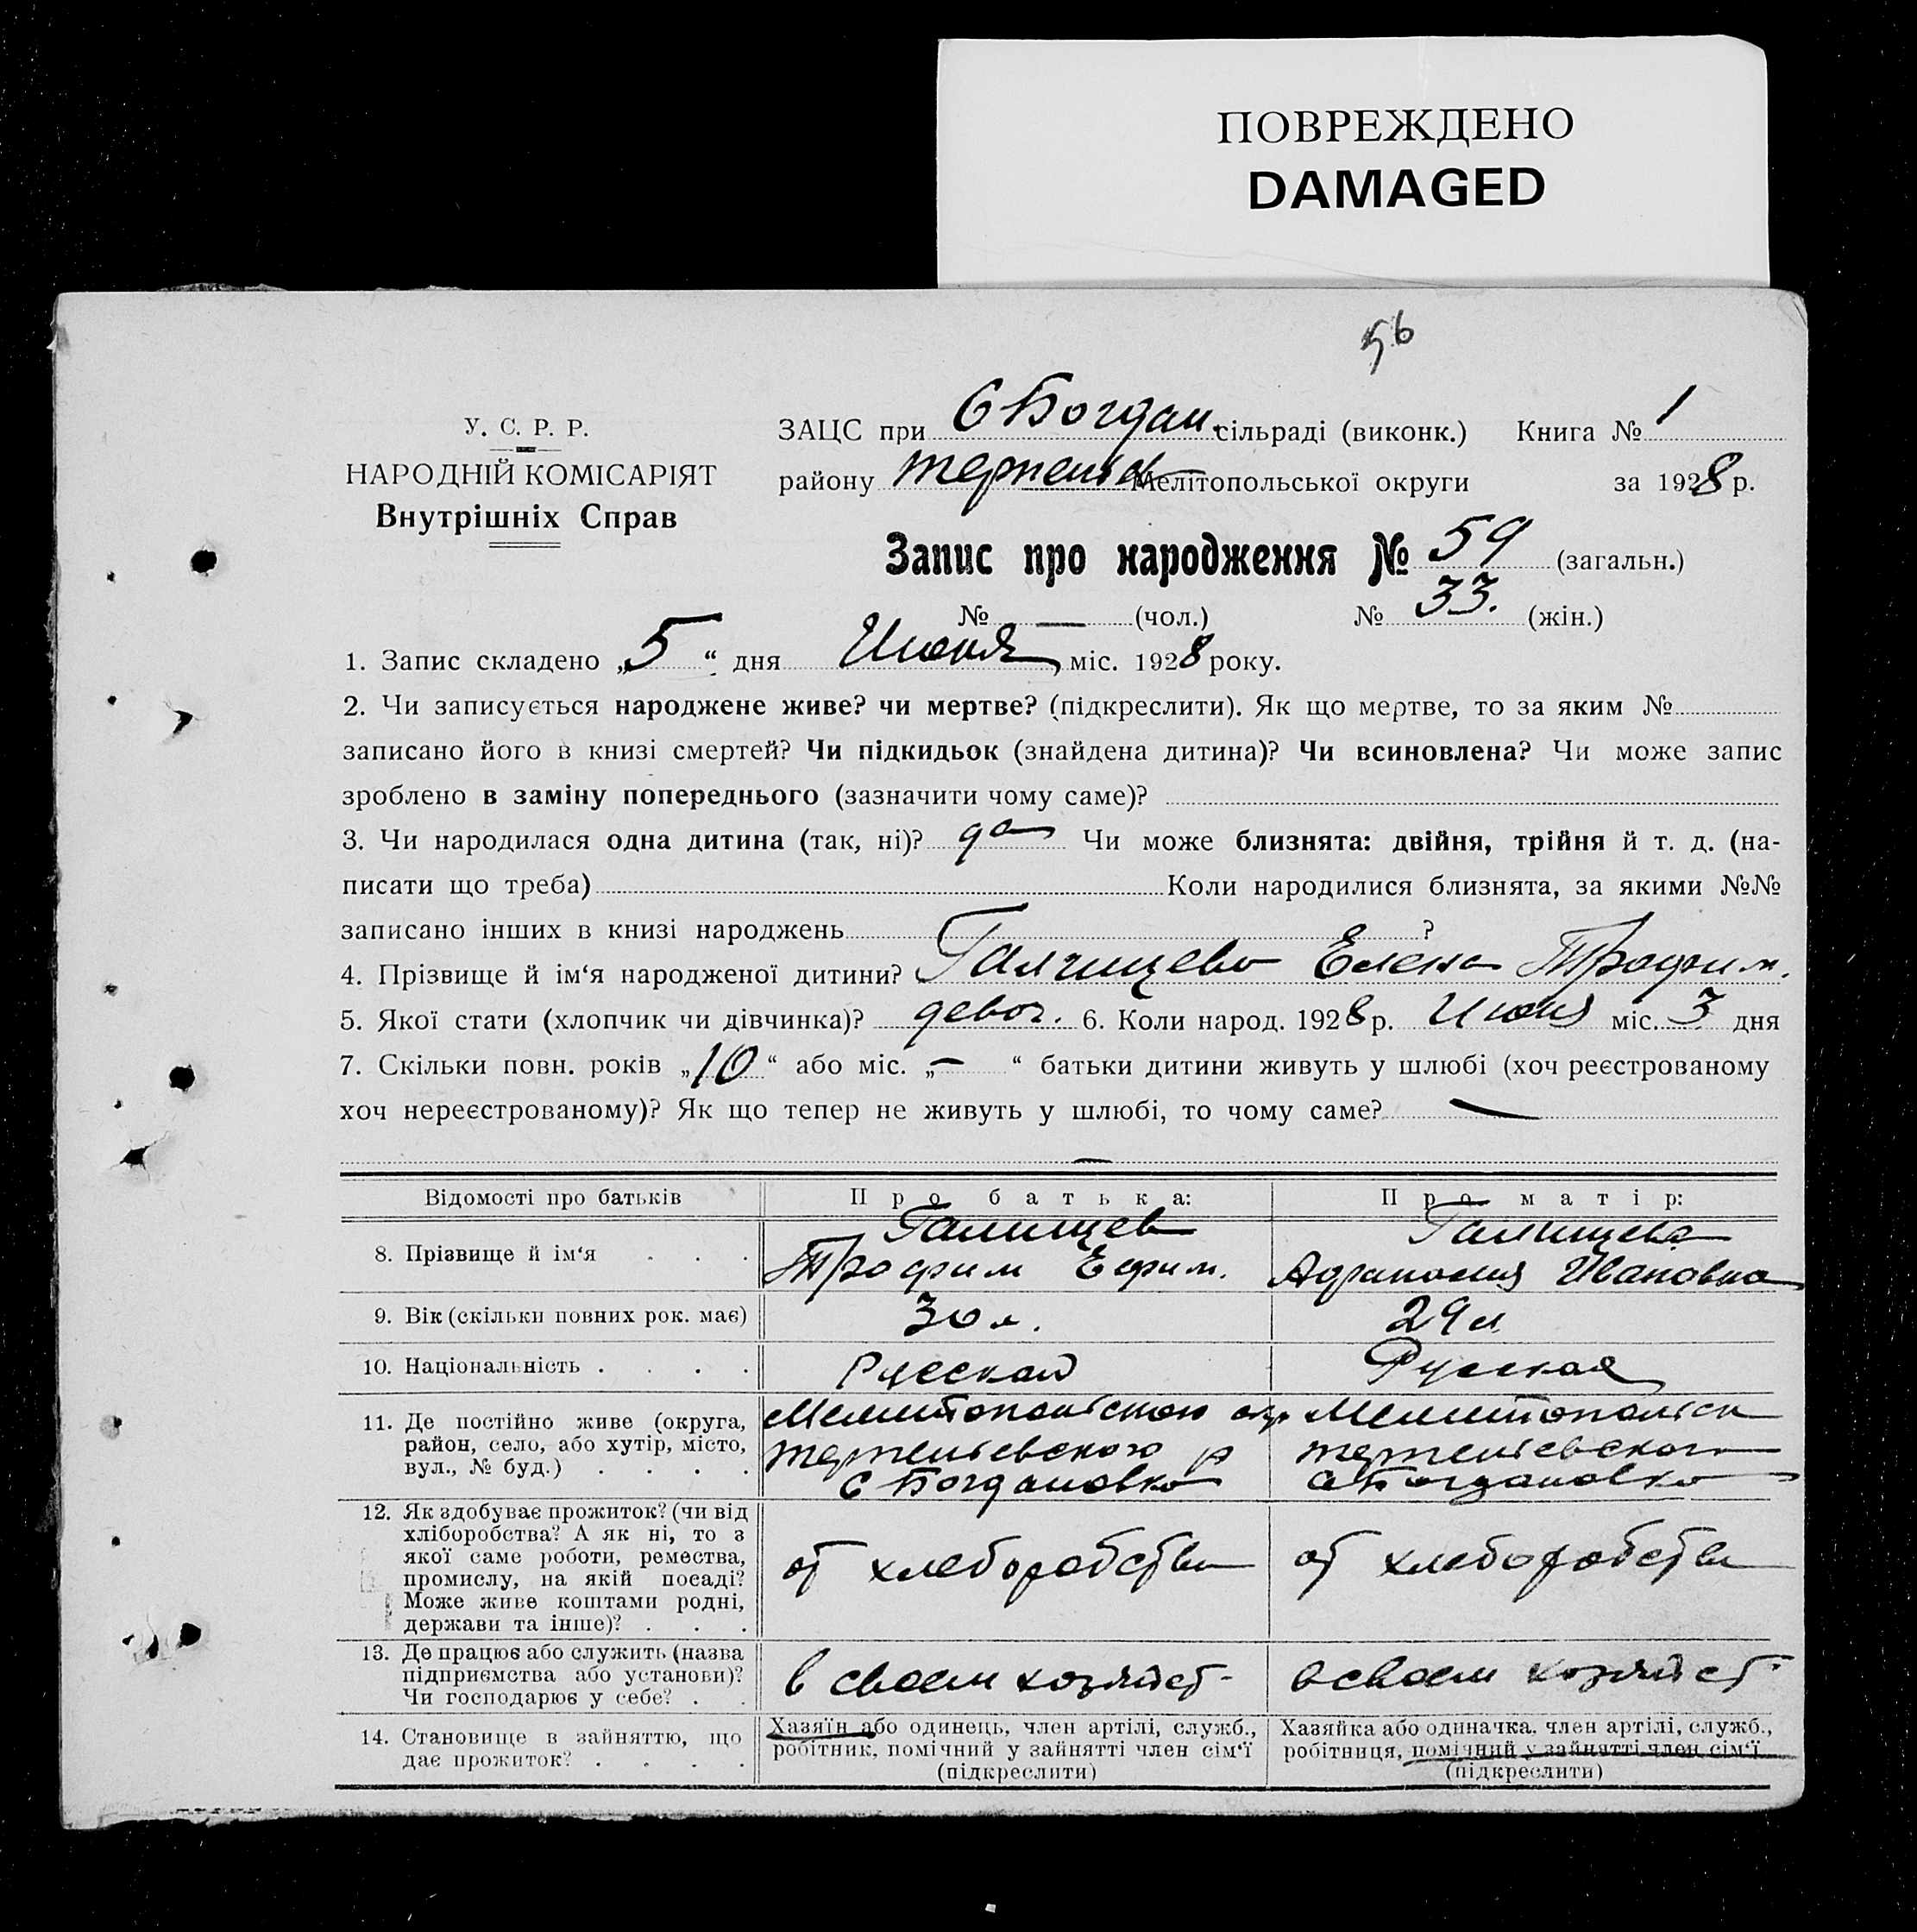 ПОВРЕЖДЕНО
DAMAGED
56
У. С. Р. Р.
НАРОДНІЙ КОМІСАРІЯТ
Внутрішніх Справ
ЗАЦС при С Богдан. сільраді (виконк.) Книга № 1
району Терпеньев Мелітопольської округи за 1928 р.
Запис про народження № 59 (загальн.)
№ — (чол.) № 33. (жін.)
1. Запис складено „5“ дня Июня міс. 1928 року.
2. Чи записується народжене живе? чи мертве? (підкреслити). Як що мертве, то за яким №
записано його в книзі смертей? Чи підкидьок (знайдена дитина)? Чи всиновлена? Чи може запис
зроблено в заміну попереднього (зазначити чому саме)?
3. Чи народилася одна дитина (так, ні)? да Чи може близнята: двійня, трійня й т. д. (на-
писати що треба) Коли народилися близнята, за якими №№
записано інших в книзі народжень ?
4. Прізвище й ім‘я народженої дитини? Галищева Елена Трофим.
5. Якої стати (хлопчик чи дівчинка)? девоч. 6. Коли народ. 1928 р. Июня міс. 3 дня
7. Скільки повн. років „10“ або міс. „—“ батьки дитини живуть у шлюбі (хоч реєстрованому
хоч нереєстрованому)? Як що тепер не живуть у шлюбі, то чому саме? —
—
Відомості про батьків Про батька: Про матір:
8. Прізвище й ім‘я . . . Галищев Трофим Ефим. Галищева Ивановна
9. Вік (скільки повних рок. має) 30 л. 29 л
10. Національність . . . . Русский Русская
11. Де постійно живе (округа,
район, село, або хутір, місто,
вул., № буд.) . . . .
Мелитопольского окр
Терпеньевского р
С Богдановка
Мелитопольск
Терпеньевского
С Богдановка
12. Як здобуває прожиток? (чи від
хліборобства? А як ні, то з
якої саме роботи, ремества,
промислу, на якій посаді?
Може живе коштами родні,
держави та інше)? . . .
от хлеборобства
от хлеборобства
13. Де працює або служить (назва
підприємства або установи)?
Чи господарює у себе? . .
в своем хозяйст-
в своем хозяйст-
14. Становище в зайняттю, що
дає прожиток? . . . .
Хазяїн або одинець, член артілі, служб.,
робітник, помічний у зайнятті член сім‘ї
(підкреслити)
Хазяйка або одиначка, член артілі, служб.,
робітниця, помічний у зайнятті член сім‘ї
(підкреслити)